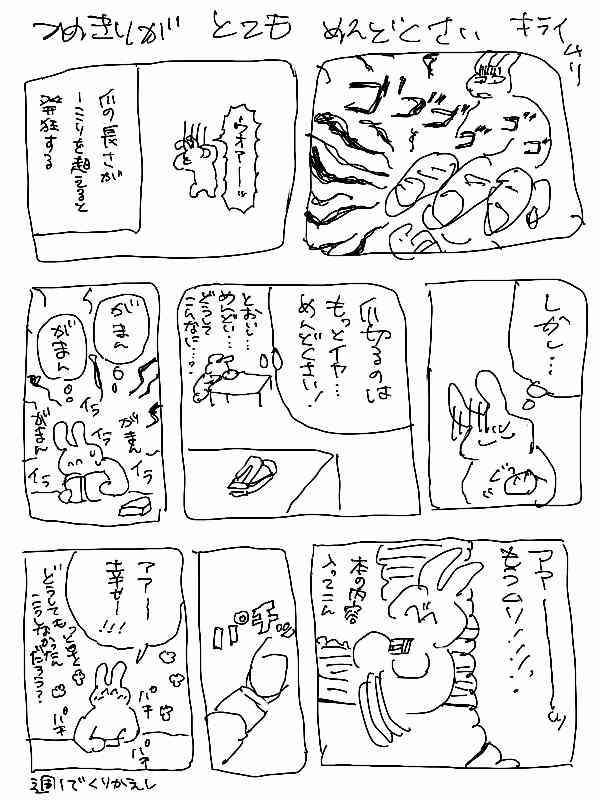 つめきりが とても めんどくさい キライ
ムリ
ゴゴゴゴゴゴ
ウオアーーッ
爪の長さが
一ミリを超えると
発狂する
しかし…
ぐっ
爪切るのは
もっとイヤ…
めんどくさい!
とおい…
めんどい…
どうして
こんない…。
がまん
がまん
がまん
がまん
イラ
イラ
イラ
イラ
アアーーーッ
もうムリ!!!!
本の内容
入ってこん
パチッ
アアー
幸せー!!!
どうしてもっと早く
こうしなかったん
だろう??
パチ
パチ
パチ
週1でくりかえし